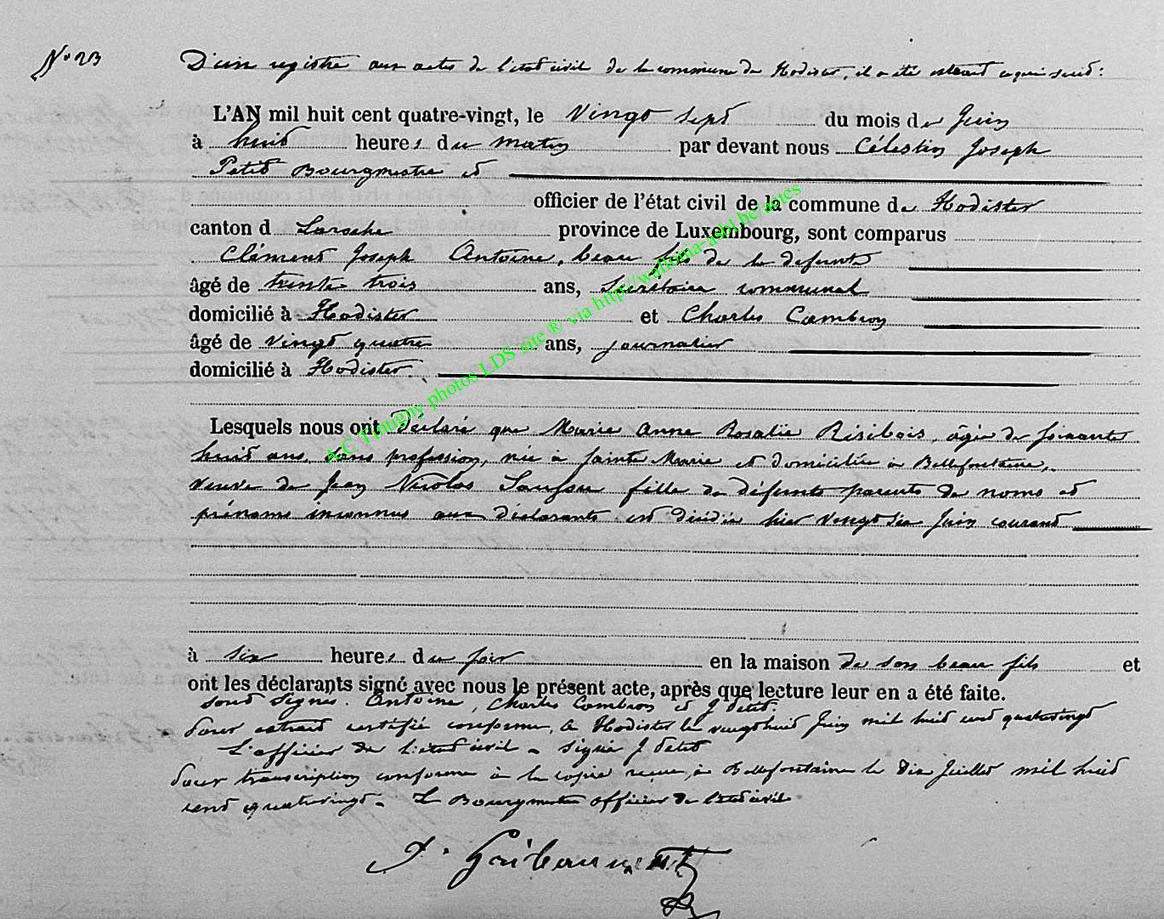 N° 23
D'un registre aux actes de l'état civil de la commune de Hodister, il a été extrait ce qui suit :
L'AN mil huit cent quatre-vingt, le vingt sept du mois de Juin
à huit heures du matin par devant nous Célestin Joseph
Petit Bourgmestre et
officier de l'état civil de la commune de Hodister
canton d Laroche province de Luxembourg, sont comparus
Clément Joseph Antoine, beau fils de la défunte
âgé de trente trois ans, Secrétaire communal
domicilié à Hodister et Charles Cambron
âgé de vingt quatre ans, journalier
domicilié à Hodister.
A.C Thugny photos LDS site ® via http://wallonia-asbl.be/actes
Lesquels nous ont déclaré que Marie Anne Rosalie Risibois, âgée de soixante
huit ans, sans profession, née à Sainte Marie et domiciliée à Bellefontaine,
veuve de Jean Nicolas fille de défunts parents de noms et
prénoms inconnus aux déclarants est décédée hier vingt six Juin courant
à six heures du soir en la maison de son beau fils et
ont les déclarants signé avec nous le présent acte, après que lecture leur en a été faite.
sont signés. Antoine, Charles Cambron et J Petit.
Pour extrait certifié conforme, à Hodister le vingt huit Juin mil huit cent quatre vingt
L'officier de l'état civil - signé J Petit
Pour transcription conforme à la copie reçue, à Bellefontaine le dix Juillet mil huit
cent quatre vingt - Le Bourgmestre officier de l'état civil